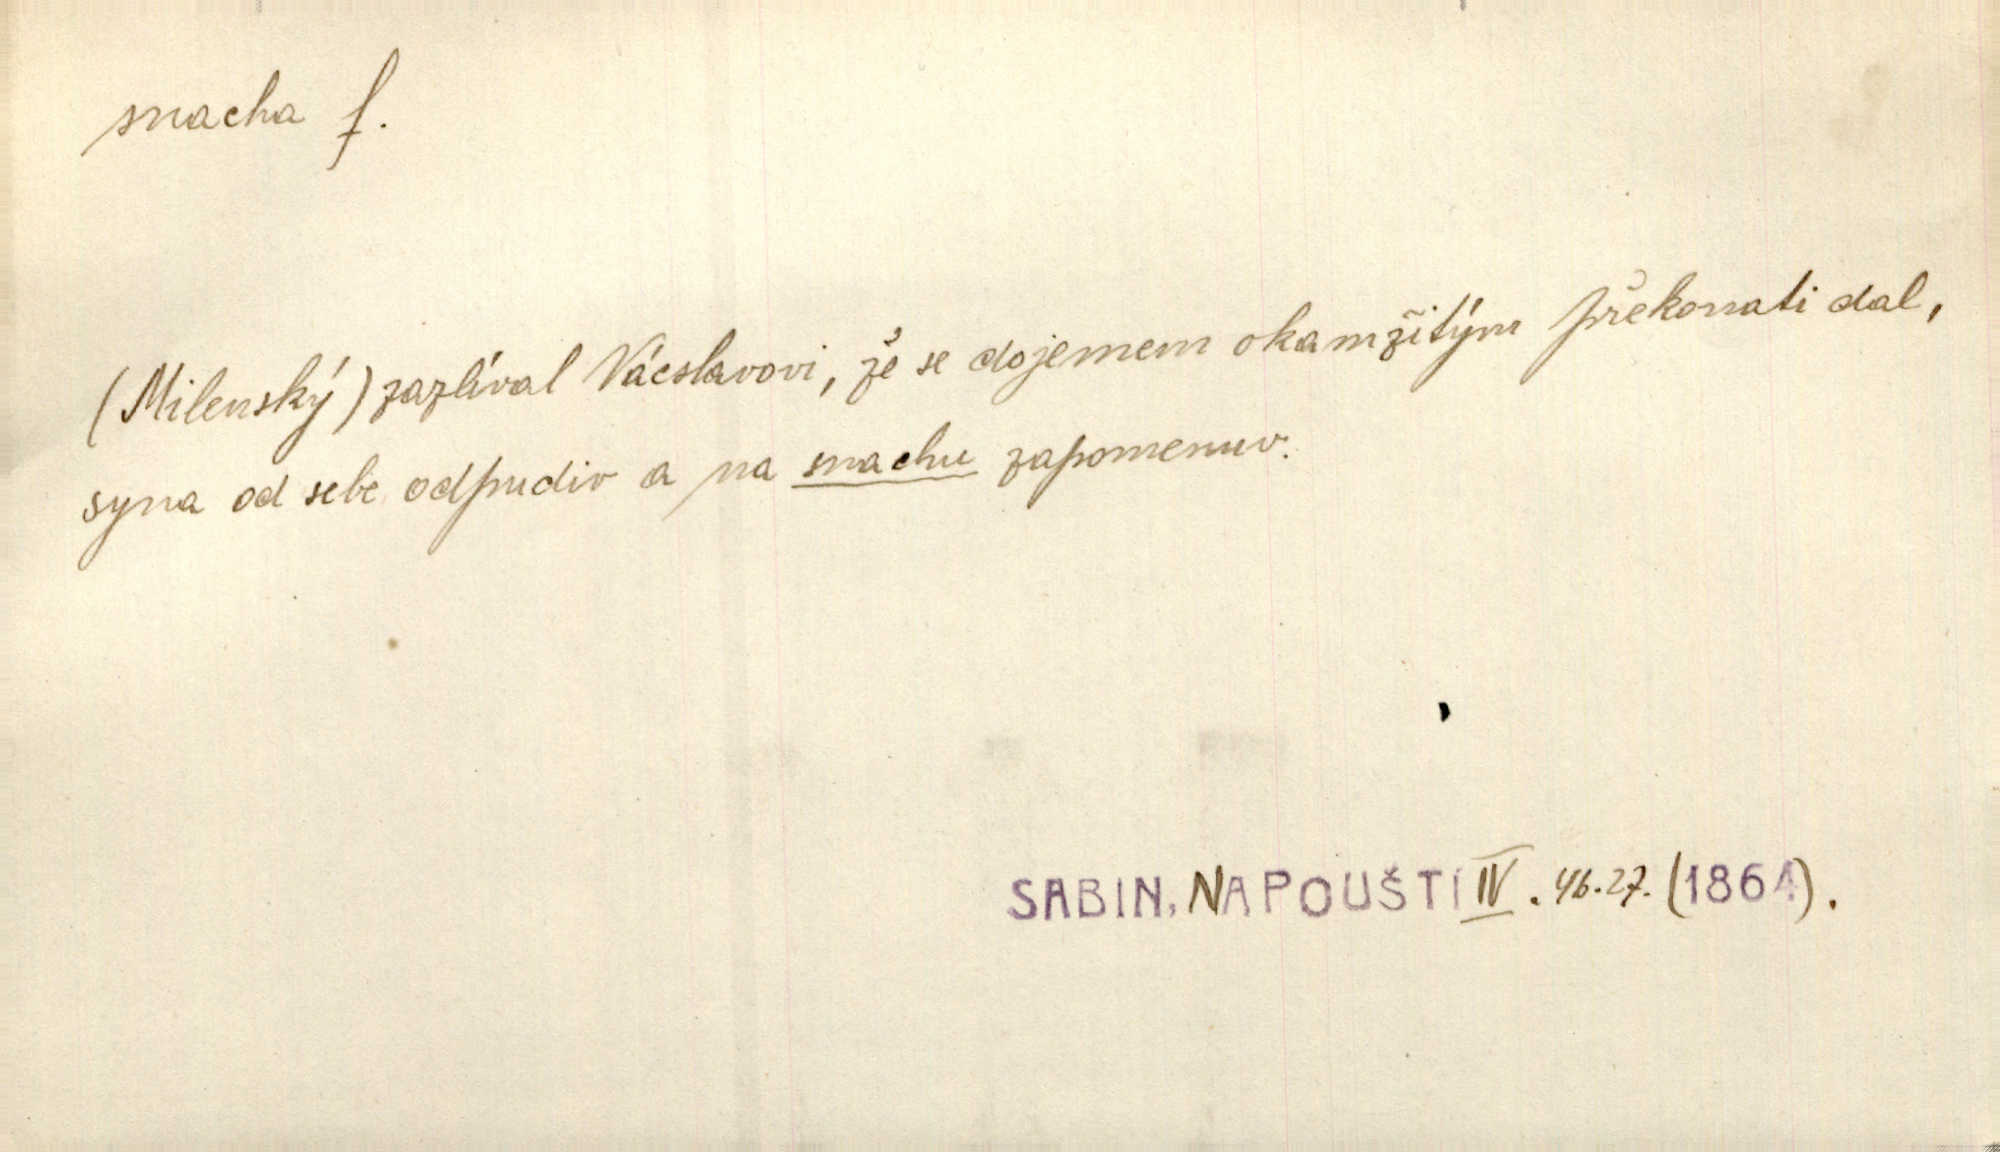 snacha f.
(Milenský) zazlíval Vácslavovi, že se dojemem okamžitým překonati dal,
syna od sebe odpudiv a na snachu zapomenuv.
SABIN, NA POUŠTI IV. 46.27. (1864).